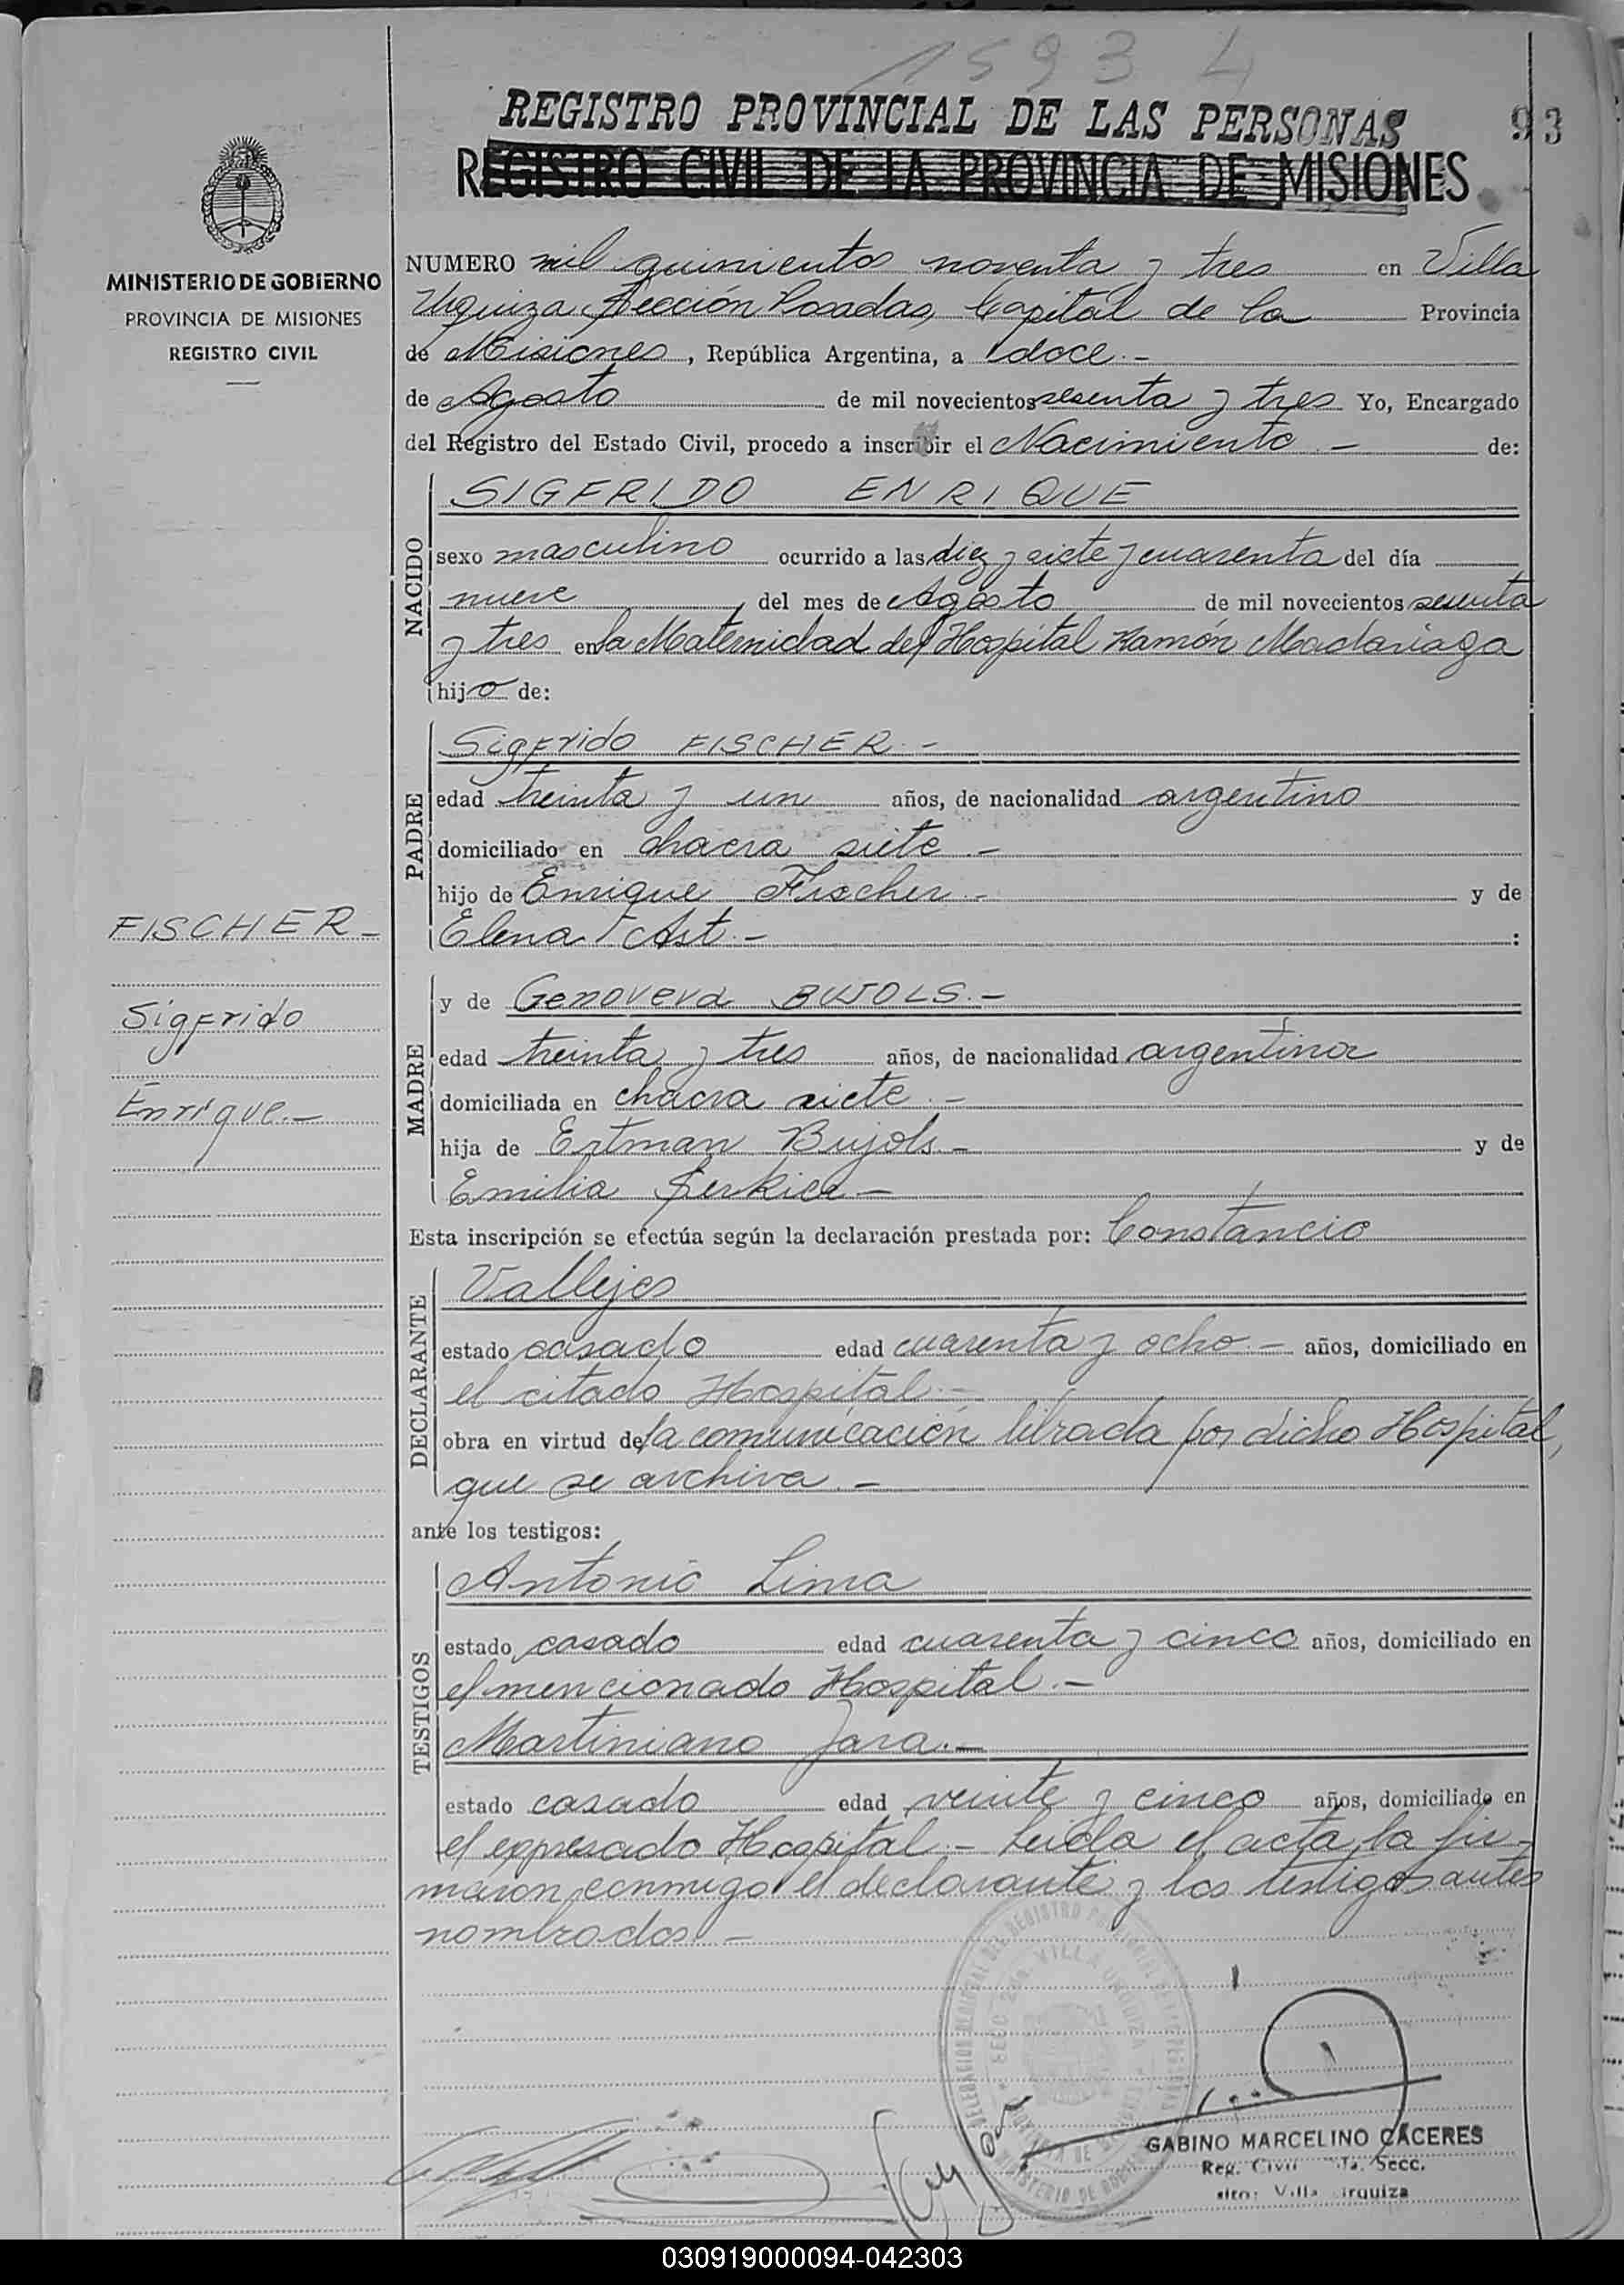 1593 4
REGISTRO PROVINCIAL DE LAS PERSONAS
93
REGISTRO CIVIL DE LA PROVINCIA DE MISIONES
MINISTERIO DE GOBIERNO
PROVINCIA DE MISIONES
REGISTRO CIVIL
NUMERO mil quinientos noventa y tres en Villa
Urquiza Sección Posadas, Capital de la Provincia
de Misiones, República Argentina, a doce.-
de Agosto de mil novecientos sesenta y tres Yo, Encargado
del Registro del Estado Civil, procedo a inscribir el Nacimiento.- de:
NACIDO
SIGFRIDO ENRIQUE
sexo masculino ocurrido a las diez y siete y cuarenta del día
nueve del mes de Agosto de mil novecientos sesenta
y tres en la Maternidad del Hospital Ramón Madariaga
hijo de:
PADRE
Sigfrido FISCHER.-
edad treinta y un años, de nacionalidad argentino
domiciliado en chacra siete.-
hijo de Enrique Fischer.- y de
Elena Ast.- :
FISCHER-
Sigfrido
Enrique.-
MADRE
y de Genoveva BUJOLS.-
edad treinta y tres años, de nacionalidad argentina
domiciliada en chacra siete.-
hija de Ertman Bujols.- y de
Emilia
Esta inscripción se efectúa según la declaración prestada por: Constancio
DECLARANTE
Vallejos
estado casado edad cuarenta y ocho.- años, domiciliado en
el citado Hospital.-
obra en virtud de la comunicación librada por dicho Hospital,
que se archiva.-
ante los testigos:
TESTIGOS
Antonio Lima
estado casado edad cuarenta y cinco años, domiciliado en
el mencionado Hospital.-
Martiniano Jara.-
estado casado edad veinte y cinco años, domiciliado en
el expresado Hospital.- Leida el acta, la fir-
maron conmigo el declarante y los testigos antes
nombrados.-
GABINO MARCELINO CÁCERES
Reg. Civil Secc.
Villa Urquiza
030919000094-042303